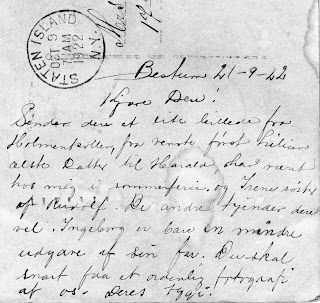 STATEN ISLAND
OCT 9
AM
1922
N.Y.
Mrs
Bestum 21-9-22
Kjære Dere!
Sender dere et lite billede fra
Holmenkollen, fra venste först
ælste Datter til Harald, har vært
hos meg i sommerferie, og Irene söster
af Rudolf. De andre kjender dere
vel. Ingeborg er bare en mindre
udgave af sin far. De skal
snart faa et ordenlig fotografi
af os. Deres